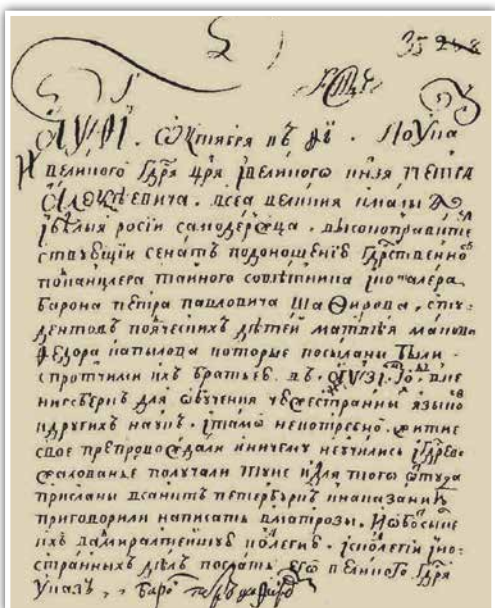 35
Октября въ ѲІ . По Ука
великого Гдря Цря Iвеликого князя ПЕТРА
Алеѯѣевича . всеа великия ималы
Iбѣлыя росии самодержца . высокоправите
ствующии сенатъ подоношению Гдрственно
поканцлера таиного совѣтника Iковалера
барона петра павловича Шаѳирова , сту
дентовъ дѣтеи матвѣя макова
Ѳедора капылова которые посыланы были
спротчими ихъ братьею въ . АѰЗІ . го . вке
нигсберхъ для обучения чюжестранны языко
идругихъ наукъ . Iтамо непотребно житие
свое препровождали иничему неучились Гдрево
жалованье получали туне Iдля того оттуда
присланы всанктъ петербурхъ инаказани
приговорили написать вматрозы . Иобосыле
ихъ вамиралтеискую колегию . Iсколегии Iно-
странныхъ дѣлъ послать его великого Гдря
Указъ , , баро петръ шаѳиров